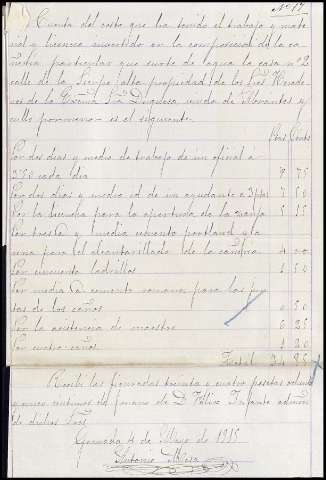 Nº 17
Cuenta del coste que ha tenido el trabajo y mate
rial y licencia invertido en la composicion de la ca
ñeria particular que surte de agua la casa nº 2
calle de la propiedad de los Sres Herede
ros de la Excma Sra Duquesa viuda de Abrantes y
cullo pormenor es el siguiente.
Pts Cents
Por dos dias y medio de trabajo de un oficial á
3'50 cada dia 8 75
Por dos dias y medio id de un ayudante a 3 ptas 7 50
Por la licencia para la apertura de la zanja 5 15
Por tres @ y media cemento portland y la
arena para el alcantarillado de la cañeria 4 00
Por cincuenta ladrillos 1 50
Por media @ cemento romano para las jun
tas de los caños 0 50
Por la asistencia de maestro 6 25
Por cuatro caños 1 20
Total 34 85
Recibi las figuradas treinta y cuatro pesetas ochenta
y cinco centimos de mano de D. Felix Infante admor
de dichos Sres
Granada 4 de Mayo de 1915
Antonio Mesa